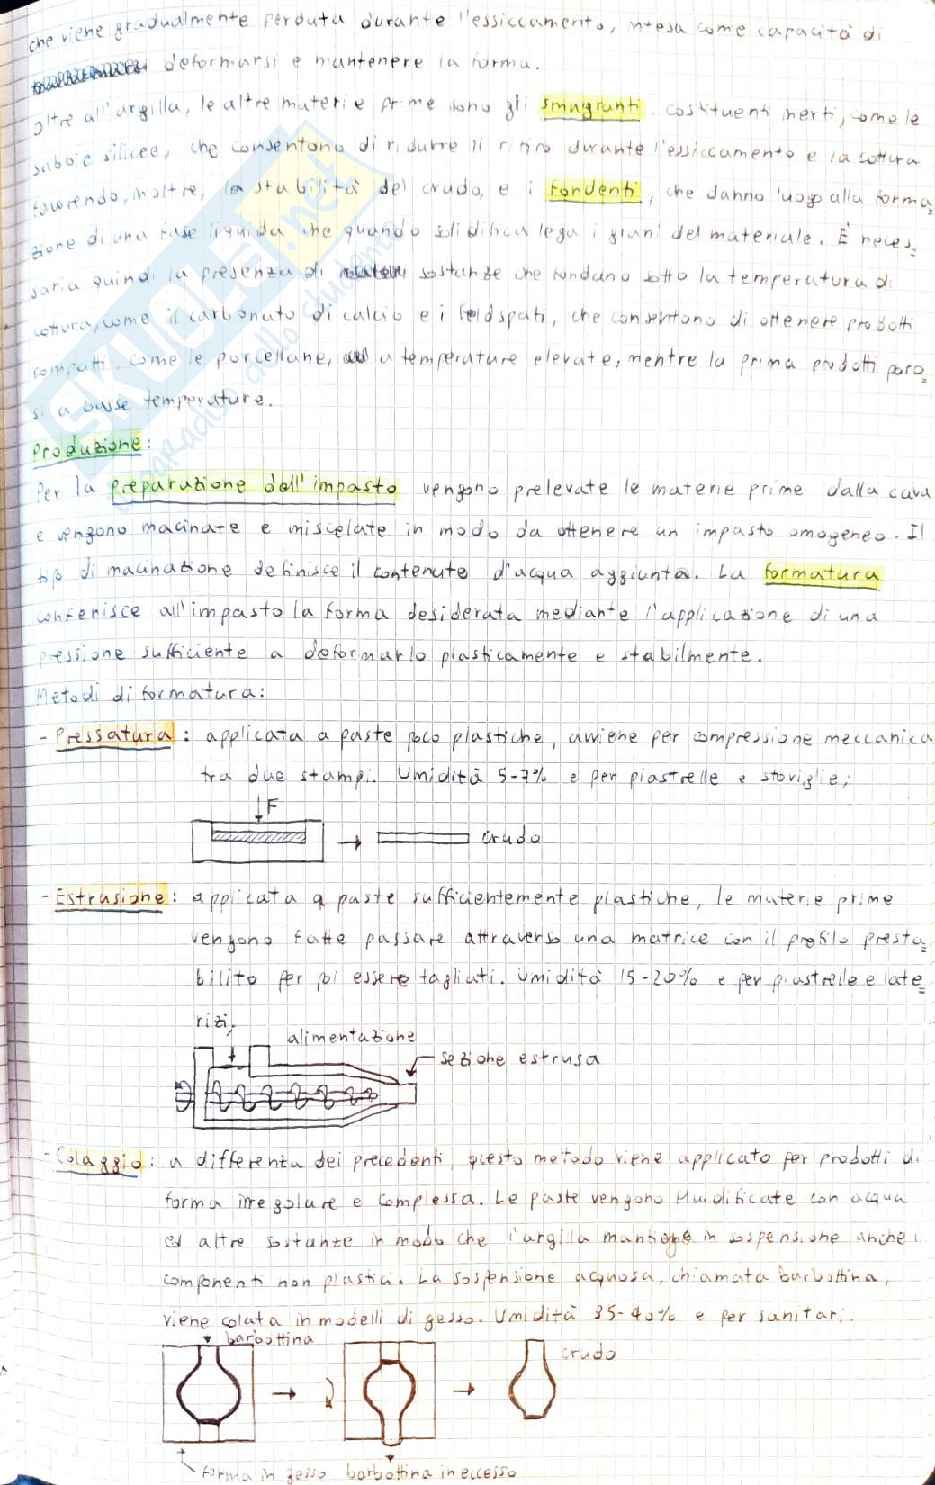 che viene gradualmente perduta durante l'essiccamento, intesa come capacità di
deformarsi e mantenere la forma.
Oltre all'argilla, le altre materie prime sono gli smagranti costituenti inerti, come le
sabbie silicee, che consentono di ridurre il ritiro durante l'essiccamento e la cottura
favorendo, inoltre, la stabilità del crudo, e i fondenti, che danno luogo alla forma=
zione di una fase liquida che quando solidifica lega i grani del materiale. È neces=
saria quindi la presenza di sostanze che fondano sotto la temperatura di
cottura, come il carbonato di calcio e i feldspati, che consentono di ottenere prodotti
compatti, come le porcellane, a temperature elevate, mentre la prima prodotti poro=
si a basse temperature.
Produzione:
Per la preparazione dell'impasto vengono prelevate le materie prime dalla cava
e vengono macinate e miscelate in modo da ottenere un impasto omogeneo. Il
tipo di macinazione definisce il contenuto d'acqua aggiunta. La formatura
conferisce all'impasto la forma desiderata mediante l'applicazione di una
pressione sufficiente a deformarlo plasticamente e stabilmente.
Metodi di formatura:
- Pressatura: applicata a paste poco plastiche, avviene per compressione meccanica
tra due stampi. Umidità 5-7% e per piastrelle e stoviglie;
F
crudo
- Estrusione: applicata a paste sufficientemente plastiche, le materie prime
vengono fatte passare attraverso una matrice con il profilo presta=
bilito per poi essere tagliati. Umidità 15-20% e per piastrelle e late=
rizi.
alimentazione
sezione estrusa
- Colaggio: a differenza dei precedenti, questo metodo viene applicato per prodotti di
forma irregolare e complessa. Le paste vengono fluidificate con acqua
ed altre sostanze in modo che l'argilla mantiene in sospensione anche i
componenti non plastici. La sospensione acquosa, chiamata barbottina,
viene colata in modelli di gesso. Umidità 35-40% e per sanitari.
barbottina
crudo
forma in gesso barbottina in eccesso
SKUOLA.net
paradiso dello studente